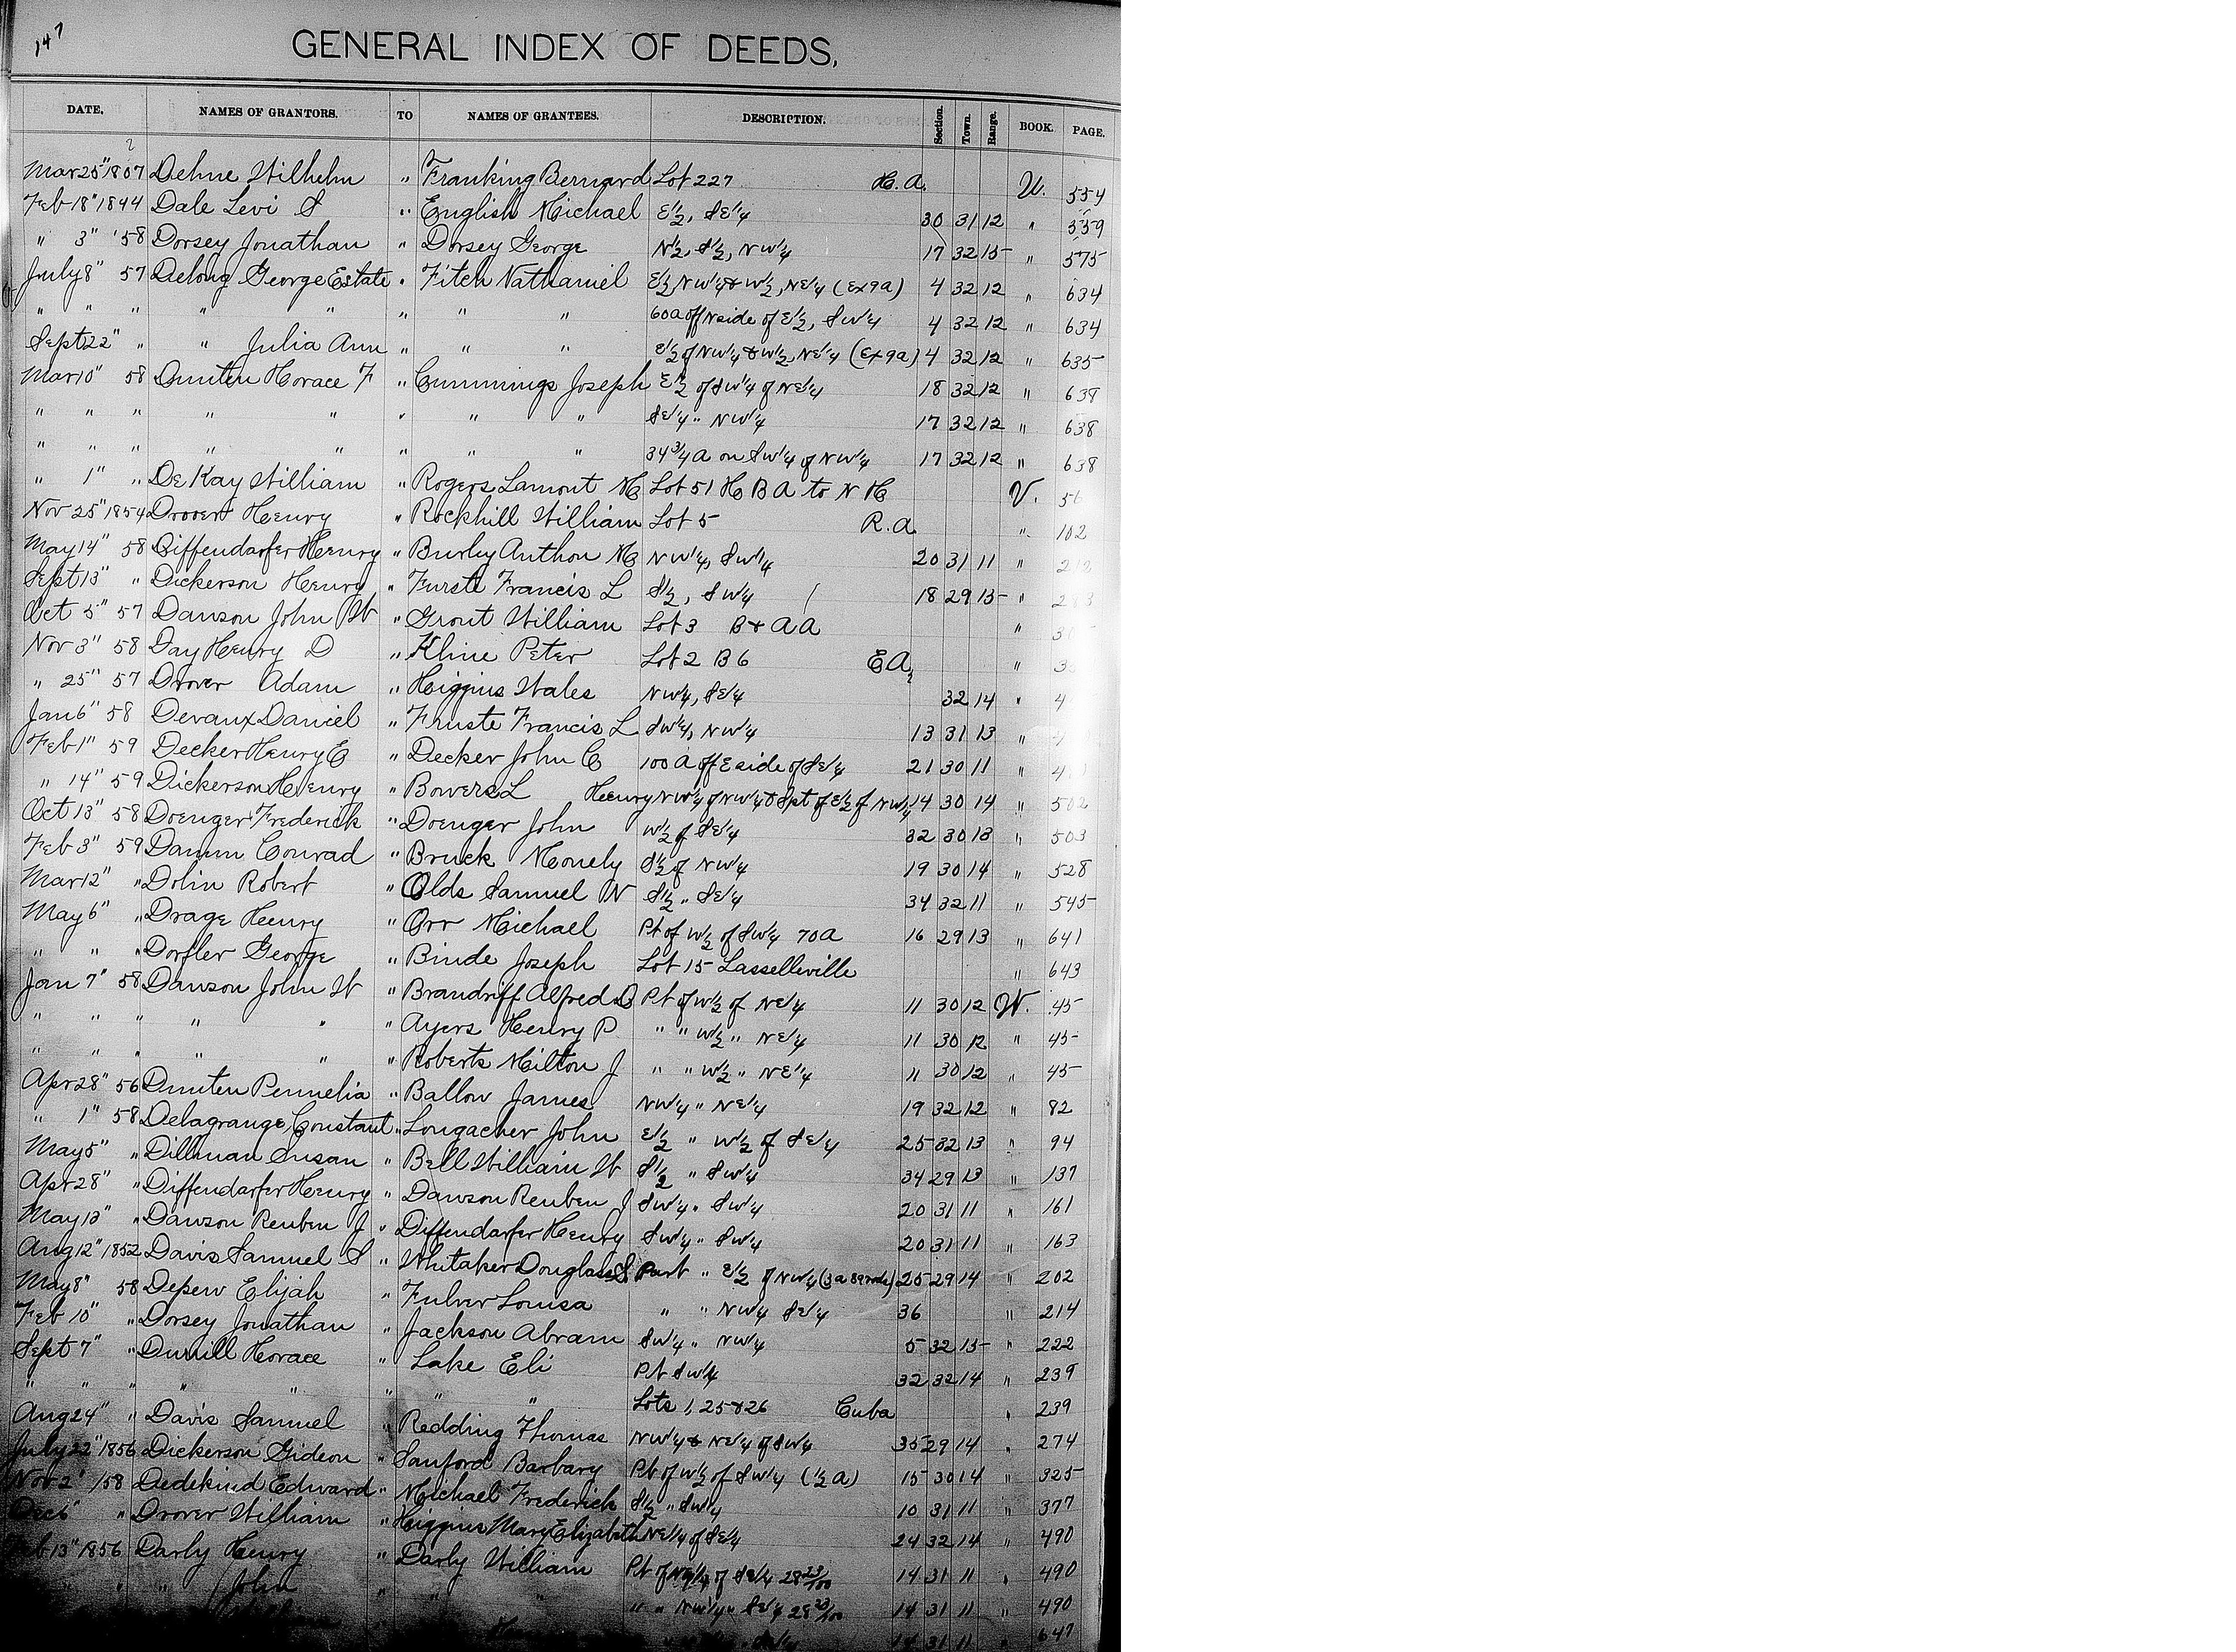 147
GENERAL INDEX OF DEEDS.
DATE. NAMES OF GRANTORS. TO NAMES OF GRANTEES. DESCRIPTION. Section. Town. Range. BOOK. PAGE.
?
Mar 25" 1807 Dehne Wilhelm " Franking Bernard Lot 227 H. A. U. 554
Feb 18" 1844 Dale Levi S " English Michael E1/2, SE1/4 30 31 12 " 559
" 3" '58 Dorsey Jonathan " Dorsey George N1/2, S1/2, NW1/4 17 32 15 " 575
July 8" 57 Delong George Estate " Fitch Nathaniel E1/2, NW1/4 & W1/2, NE1/4 (Ex 9a) 4 32 12 " 634
" " " " " " " " 60a off N side of E1/2, SW1/4 4 32 12 " 634
Sept 22" " " Julia Ann " " " E1/2 of NW1/4 & W1/2, NE1/4 (Ex 9a) 4 32 12 " 635
Mar 10" 58 Dunten Horace F " Cummings Joseph E1/2 of SW1/4 of NE1/4 18 32 12 " 638
" " " " " " " " SE1/4 " NW1/4 17 32 12 " 638
" " " " " " " " 34 3/4 a on SW1/4 of NW1/4 17 32 12 " 638
" 1" " De Kay William " Rogers Lamont M Lot 51 H B A to N H V. 56
Nov 25" 1854 Drover Henry " Rockhill William Lot 5 R. A " 102
May 14" 58 Diffendarfer Henry " Burley Anthon M NW1/4, SW1/4 20 31 11 "
Sept 13" " Dickerson Henry " Furste Francis L S1/2, SW1/4 18 29 15 "
Oct 5" 57 Dawson John W " Grout William Lot 3 B & A A "
Nov 3" 58 Day Henry D " Kline Peter Lot 2 B 6 E A "
" 25" 57 Drover Adam " Higgins Wales NW1/4, SE1/4 32 14 "
Jan 6" 58 Devaux Daniel " Fruste Francis L SW1/4, NW1/4 13 31 13 "
Feb 1" 59 Decker Henry E " Decker John C 100 A off E side of SE1/4 21 30 11 "
" 14" 59 Dickerson Henry " Bowers L Henry NW1/4 of NW1/4 & Spt of E1/2 of NW1/4 14 30 14 " 502
Oct 13" 58 Doenger Frederick " Doenger John W1/2 of SE1/4 32 30 13 " 503
Feb 3" 59 Damm Conrad " Bruck Monely S1/2 of NW1/4 19 30 14 " 528
Mar 12" " Dolin Robert " Olds Samuel W S1/2 " SE1/4 34 32 11 " 545
May 6" " Drage Henry " Orr Michael Pt of W1/2 of SW1/4 70 A 16 29 13 " 641
" " " Dorfler George " Binde Joseph Lot 15 Lasselleville " 643
Jan 7" 58 Dawson John W " Brandriff Alfred B Pt of W1/2 of NE1/4 11 30 12 W. 45
" " " " " " Ayers Henry P " " W1/2 " NE1/4 11 30 12 " 45
" " " " " " Roberts Milton J " " W1/2 " NE1/4 11 30 12 " 45
Apr 28" 56 Dunten Permelia " Ballow James NW1/4 " NE1/4 19 32 12 " 82
" 1" 58 Delagrange, Constant " Longacher John E1/2 " W1/2 of SE1/4 25 32 13 " 94
May 5" " Dillman Susan " Bell William W S1/2 " SW1/4 34 29 13 " 137
Apr 28" " Diffendarfer Henry " Dawson Reuben J SW1/4 " SW1/4 20 31 11 " 161
May 13" " Dawson Reuben J " Diffendarfer Henry SW1/4 " SW1/4 20 31 11 " 163
Aug 12" 1852 Davis Samuel S " Whitaker Douglass S Part " E1/2 of NW1/4 (3a 89 rods) 25 29 14 " 202
May 8" 58 Depew Elijah " Fulver Louisa " " NW1/4 SE1/4 36 " 214
Feb 10" " Dorsey Jonathan " Jackson Abram SW1/4 " NW1/4 5 32 15 " 222
Sept 7" " Durill Horace " Lake Eli Pt SW1/4 32 32 14 " 239
" " " " " " " " Lots 1, 25 & 26 Cuba " 239
Aug 24" " Davis Samuel " Redding Thomas NW1/4 & NE1/4 of SW1/4 35 29 14 " 274
July 22" 1856 Dickerson Gideon " Sanford Barbary Pt of W1/2 of SW1/4 (1/2 A) 15 30 14 " 325
Nov 2" /58 Dedekind Edward " Michael Frederick S1/2 " SW1/4 10 31 11 " 377
Dec 6" " Drover William " Higgins Mary Elizabeth NE1/4 of SE1/4 24 32 14 " 490
Feb 13" 1856 Darly Henry " Darly William Pt of NE1/4 of SE1/4 28 23/100 14 31 11 " 490
" " John " " " " " NW1/4 " SE1/4 28 23/100 14 31 11 " 490
14 31 11 " 647